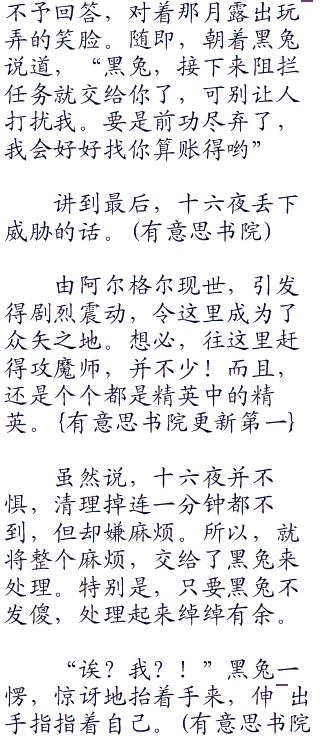 不予回答，对着那月露出玩
弄的笑脸。随即，朝着黑兔
说道，“黑兔，接下来阻拦
任务就交给你了，可别让人
打扰我。要是前功尽弃了，
我会好好找你算账得哟”
讲到最后，十六夜丢下
威胁的话。(有意思书院)
由阿尔格尔现世，引发
得剧烈震动，令这里成为了
众矢之地。想必，往这里赶
得攻魔师，并不少！而且，
还是个个都是精英中的精
英。{有意思书院更新第一}
虽然说，十六夜并不
惧，清理掉连一分钟都不
到，但却嫌麻烦。所以，就
将整个麻烦，交给了黑兔来
处理。特别是，只要黑兔不
发傻，处理起来绰绰有余。
“诶？我？！”黑兔一
愣，惊讶地抬着手来，伸出
手指指着自己。(有意思书院